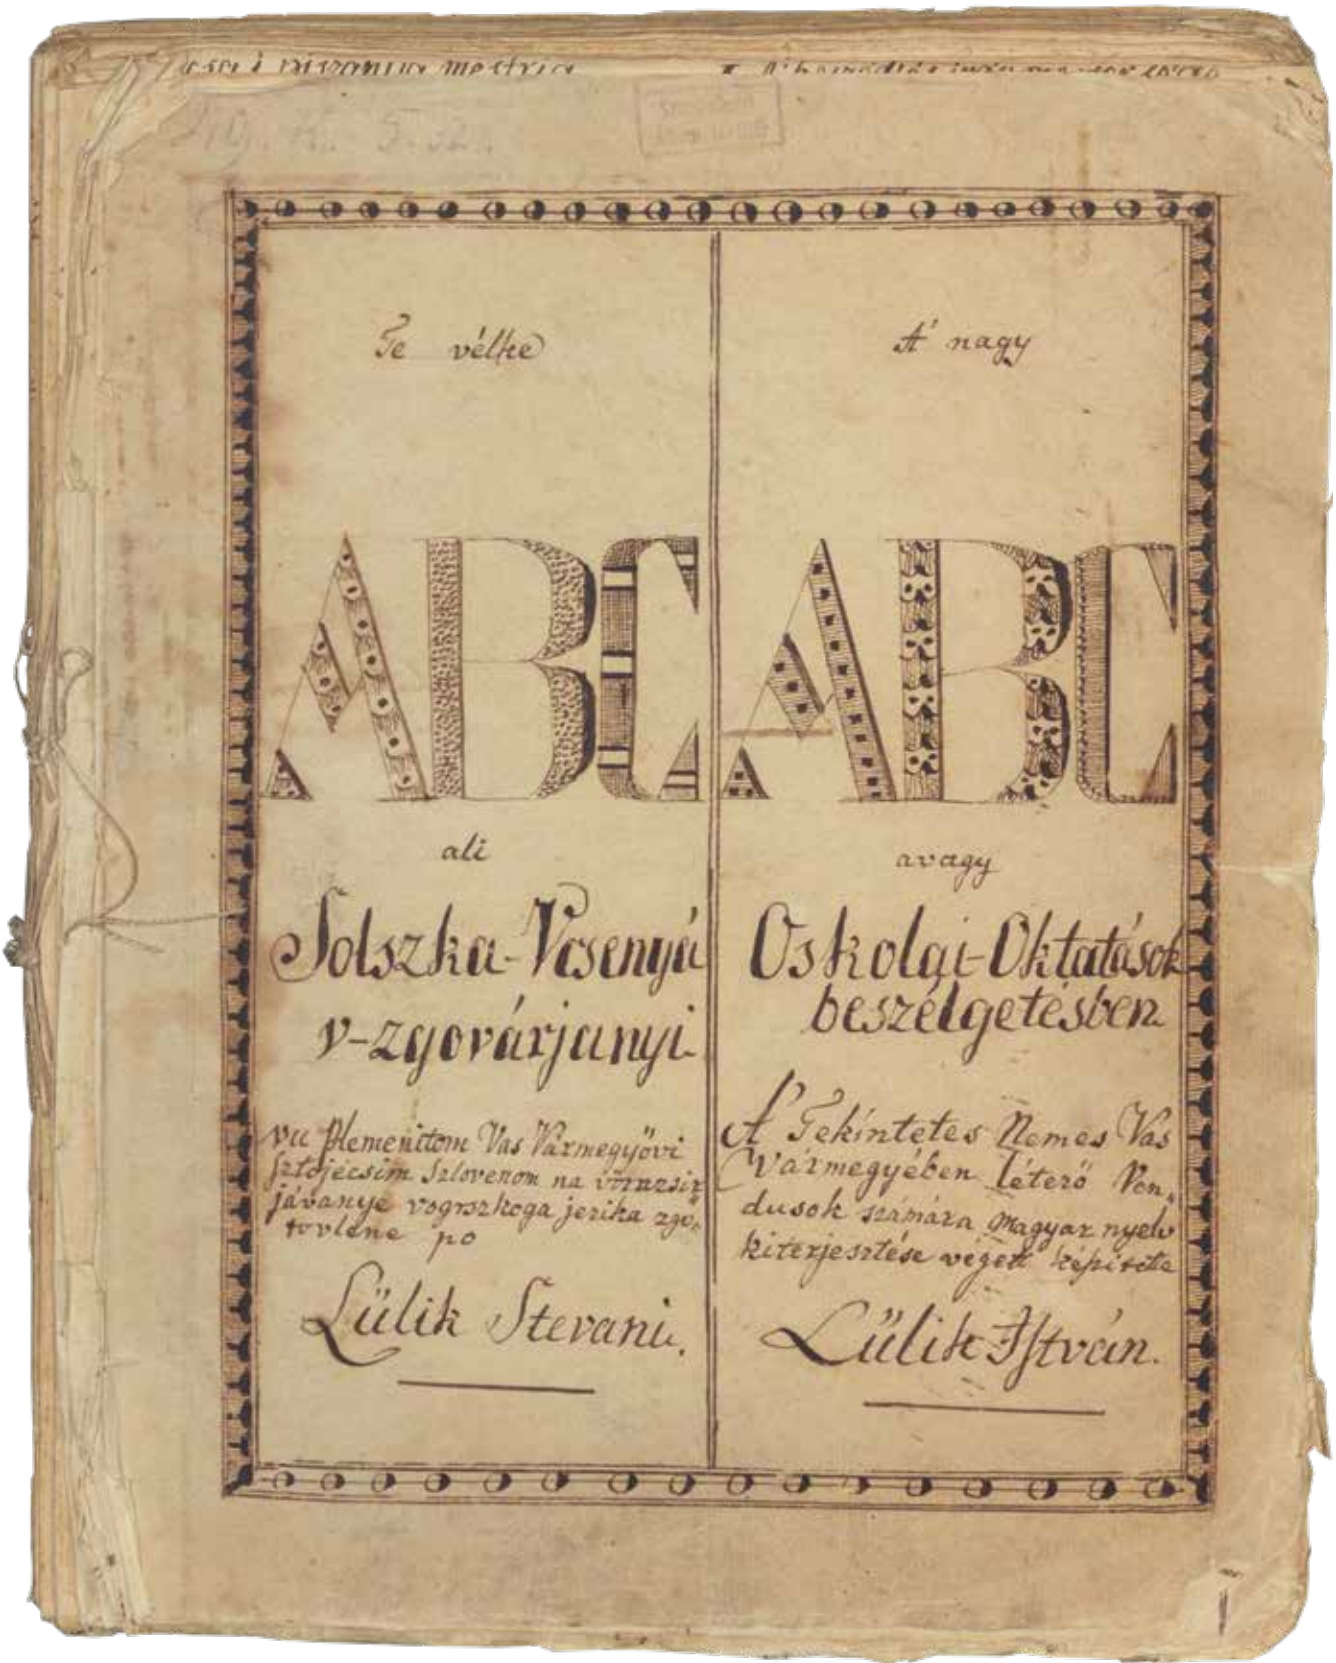 Te vélke
ABC
ali
Solszka-Vcsenyá
v-zgovárjanyi
vu plemenitom Vas Vármegyövi
sztojécsim Szlovenom na
jávanye vogrszkoga jezika zgo„
tovlene po
Lülik Stevani.
A' nagy
ABC
avagy
Oskolai-Oktatások
beszélgetésben
A' Tekíntetes Nemes Vas
Vármegyében léterö Ven„
dusok számára magyar nyelv
kiterjesztése végett
Lülik István.